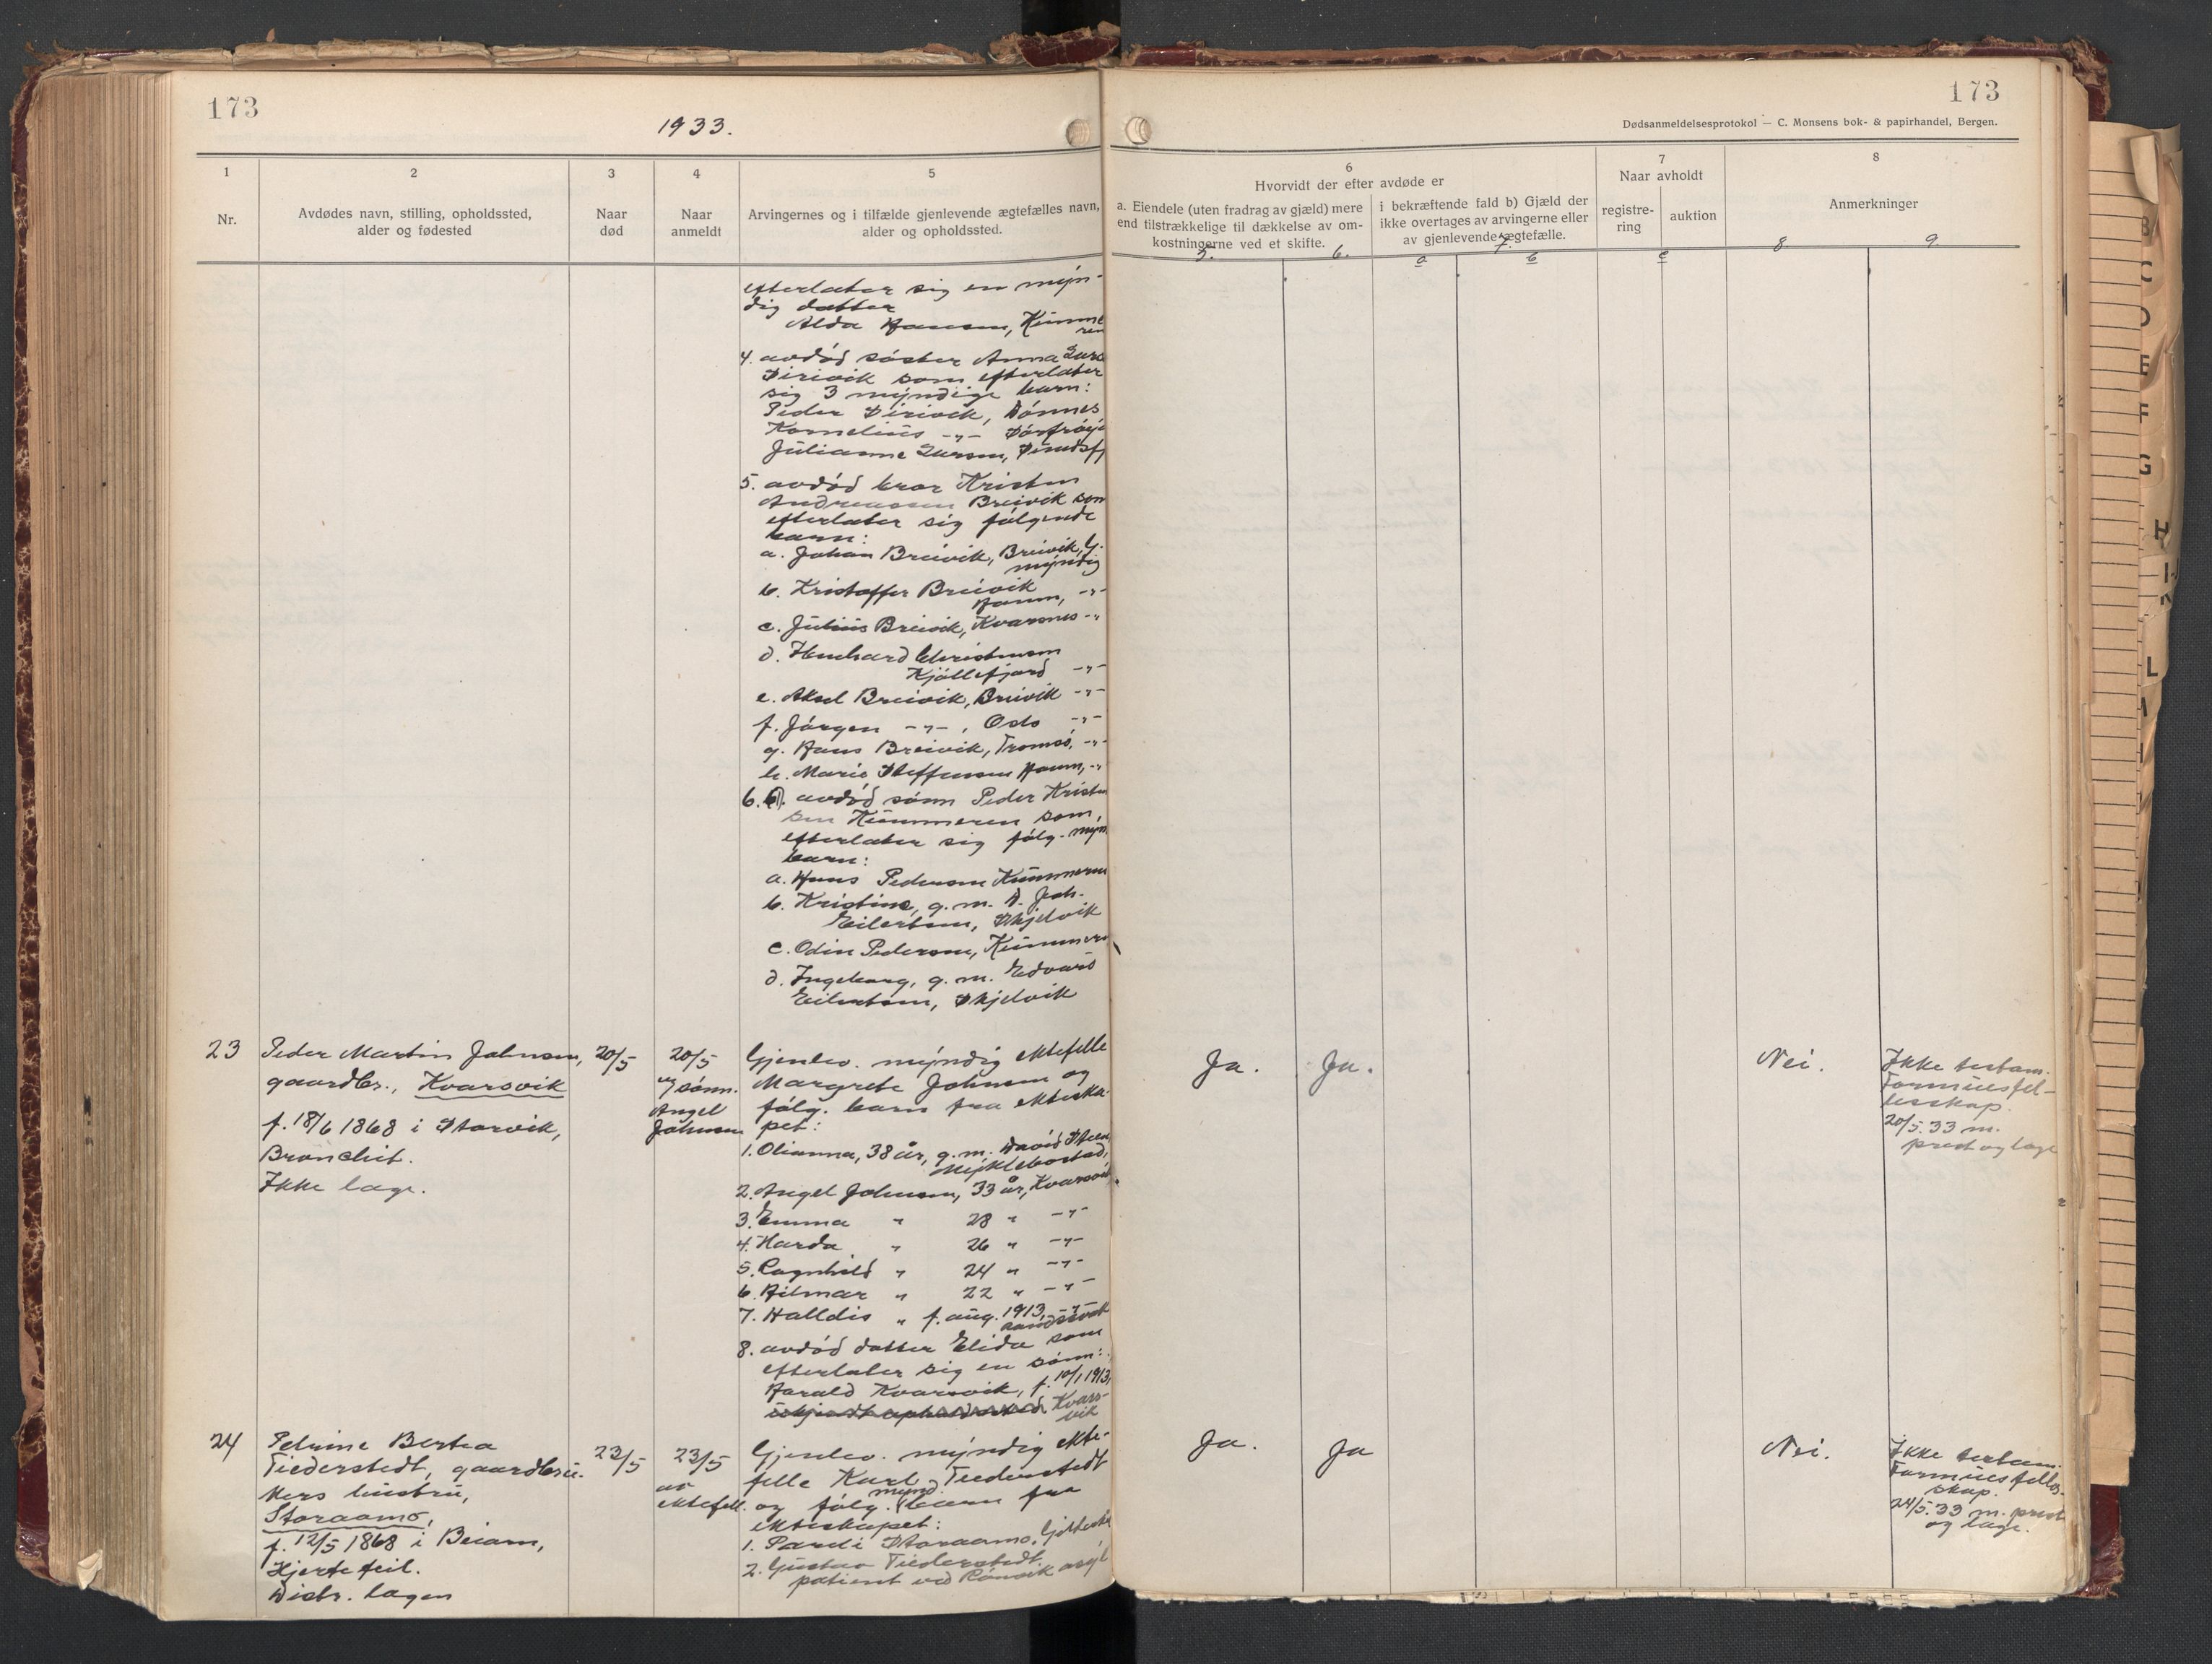 173
1933.
173
Dødsanmeldelsesprotokol — C. Monsens bok- & papirhandel, Bergen.
1
Nr.
2
Avdødes navn, stilling, opholdssted,
alder og fødested
3
Naar
død
4
Naar
anmeldt
5
Arvingernes og i tilfælde gjenlevende ægtefælles navn,
alder og opholdssted.
6
Hvorvidt der efter avdøde er
a. Eiendele (uten fradrag av gjæld) mere
end tilstrækkelige til dækkelse av om-
kostningerne ved et skifte.
i bekræftende fald b) Gjæld der
ikke overtages av arvingerne eller
av gjenlevende ægtefælle.
7
Naar avholdt
registre-
ring
auktion
8
Anmerkninger
5. 6. a 7. b c 8 9
efterlater sig en myn-
dig datter
Alda Hansen,
4. avdød søster Anna
som efterlater
sig 3 myndige barn:
Peder Dønnes
Kornelius -"-
Julianne
5. avdød bror Kristen
Andreassen Breivik som
efterlater sig følgende
barn:
a. Johan Breivik, Breivik, G.
myndig
b. Kristoffer Breivik
-"-
c. Julius Breivik, Kvarsnes -"-
d.
Kjøllefjord -"-
e. Aksel Breivik, Breivik -"-
f. Jørgen -"-, Oslo -"-
g. Hans Breivik, Tromsø, -"-
h. Marie Steffensen -"-
6. avdød sønn Peder Kristen
sen som
efterlater sig følg. mynd.
barn:
a. Hans Pedersen
b. Kristine, g.m.
Eilertsen, Skjelvik
c. Odin Pedersen,
d. Ingeborg, g.m. Edvard
Eilertsen, Skjelvik
23
Peder Martin Johnsen,
gaardbr., Kvarsvik
f. 18/6 1868 i Storvik,
Bronchit.
Ikke læge.
20/5
20/5
av sønn.
Angel
Johnsen
Gjenlev. myndig ektefelle
Margrete Johnsen og
følg. barn fra ekteska-
pet:
1. Olianna, 38 år, g.m. David Steen
Myklebostad,
2. Angel Johnsen, 33 år, Kvarsvik
3. Emma " 28 " -"-
4. Harda " 26 " -"-
5. Ragnhild " 24 " -"-
6. Hilmar " 22 " -"-
7. Halldis " f. aug. 1913, -"-
8. avdød datter Elida som
efterlater sig en sønn:
Harald Kvarsvik, f. 10/1 1913,
Kvars-
vik
Ja. Ja. Nei.
Ikke testam.
Formuesfel-
lesskap.
20/5.33 m.
prest og læge
24
Petrine Bertea
Tiederstedt, gaardbru-
kers hustru,
Storaamo,
f. 12/5 1868 i Beiarn,
Hjertefeil.
Distr. lægen
23/5
23/5
av
ektefell.
Gjenlev. myndig ekte-
felle Karl Tiederstedt
og følg. mynd. barn fra
ekteskapet:
1. Pareli Storaamo, Gildeskål
2. Gustav Tiederstedt,
patient ved Rønvik asyl
Ja. Ja Nei.
Ikke testam.
Formuesfelles-
skap.
24/5.33 m. prest
og læge.